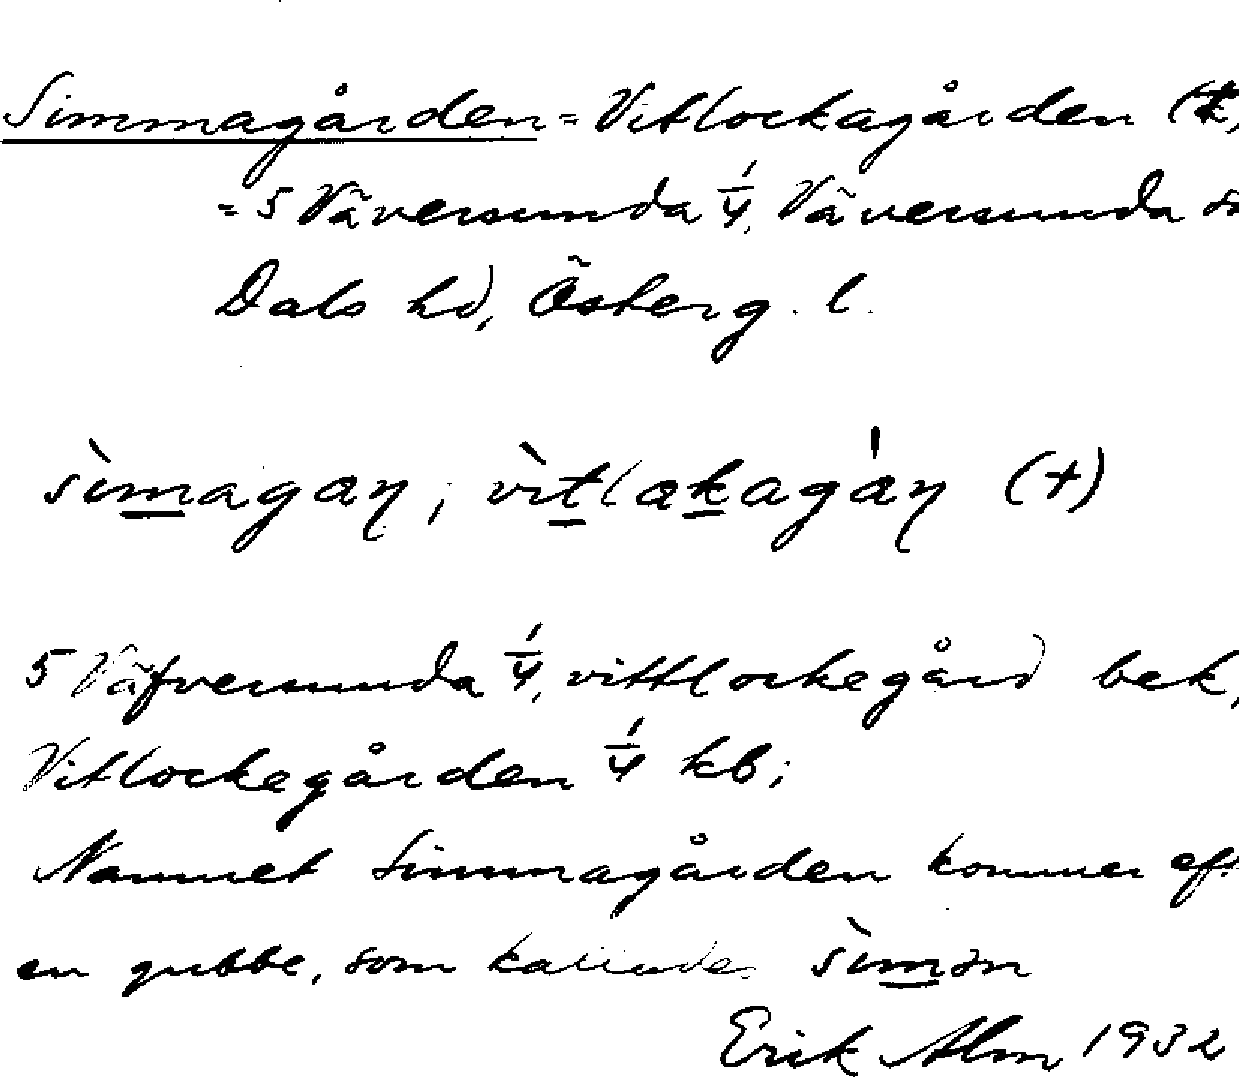 Simmagården = Vitlockagården (†,
= 5 Väversunda 1/4, Väversunda sn
Dals hd, Österg. l.
sìmagaɳ; vìtlakagáɳ (+)
5 Väfversunda 1/4, vittlockegård bek,
Vitlockegården 1/4 kb;
Namnet Simmagården kommer eft
en gubbe, som kallades sìmɘn
Erik Alm 1932